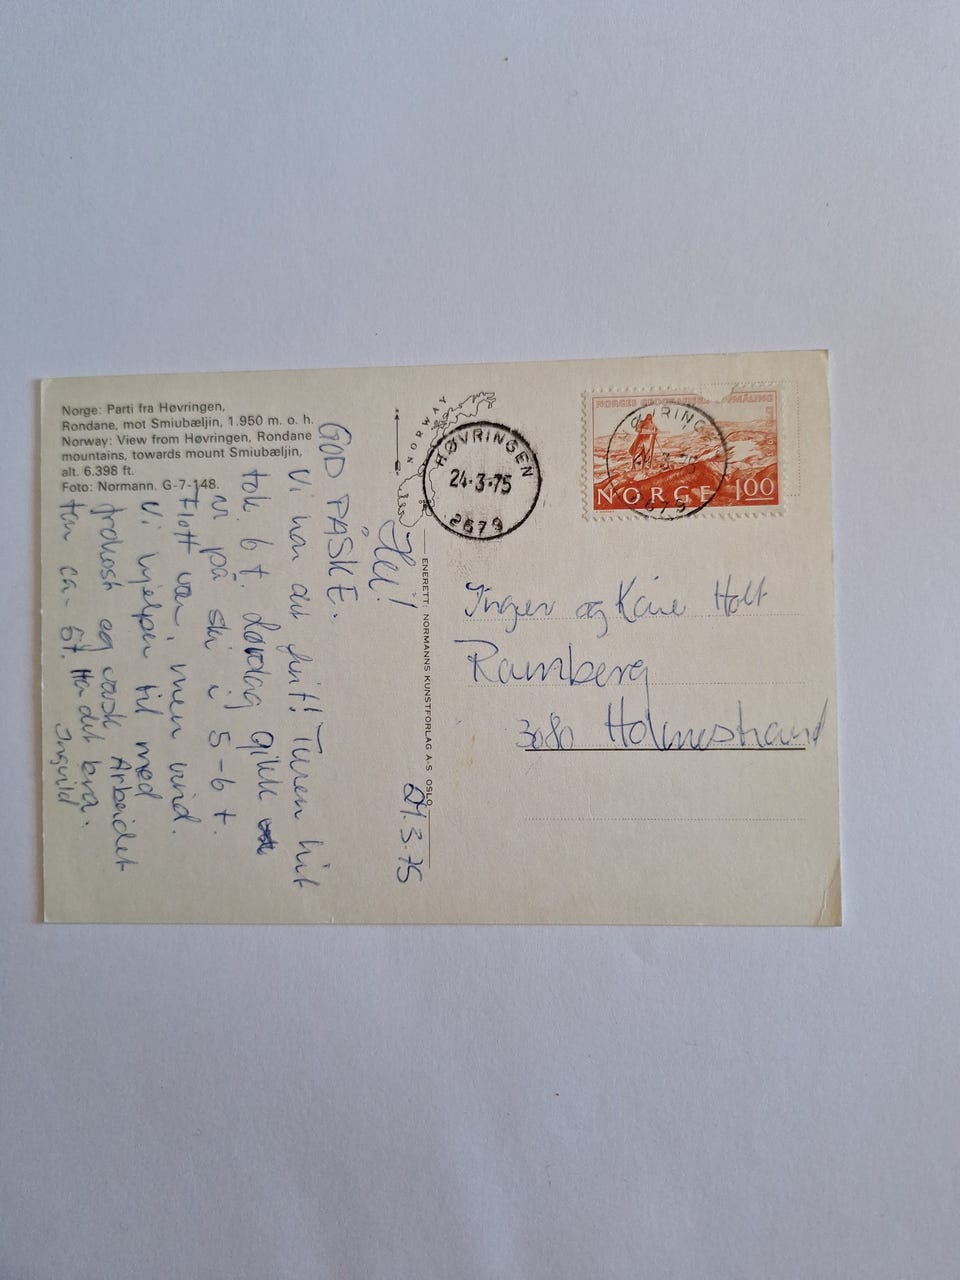 Norge: Parti fra Høvringen,
Rondane, mot Smiubæljin, 1.950 m. o. h.
Norway: View from Høvringen, Rondane
mountains, towards mount Smiubæljin,
alt. 6.398 ft.
Foto: Normann. G-7-148.
24.3.75
Hei!
GOD PÅSKE.
Vi har det fint! Turen hit
tok 6 t. Lørdag gikk
vi på ski i 5-6 t.
Flott vær, men vind.
Vi hjelper til med
frokost og vask. Arbeidet
tar ca. 5t. Ha det bra.
Ingvild
NORWAY
ENERETT: NORMANNS KUNSTFORLAG A·S OSLO
HØVRINGEN
24-3-75
2679
NORGES GEOGRAFISKE OPPMÅLING
NORGE 100
HØVRINGEN
24-3-75
2679
Inger og Kåre Holt
Ramberg
3080 Holmestrand